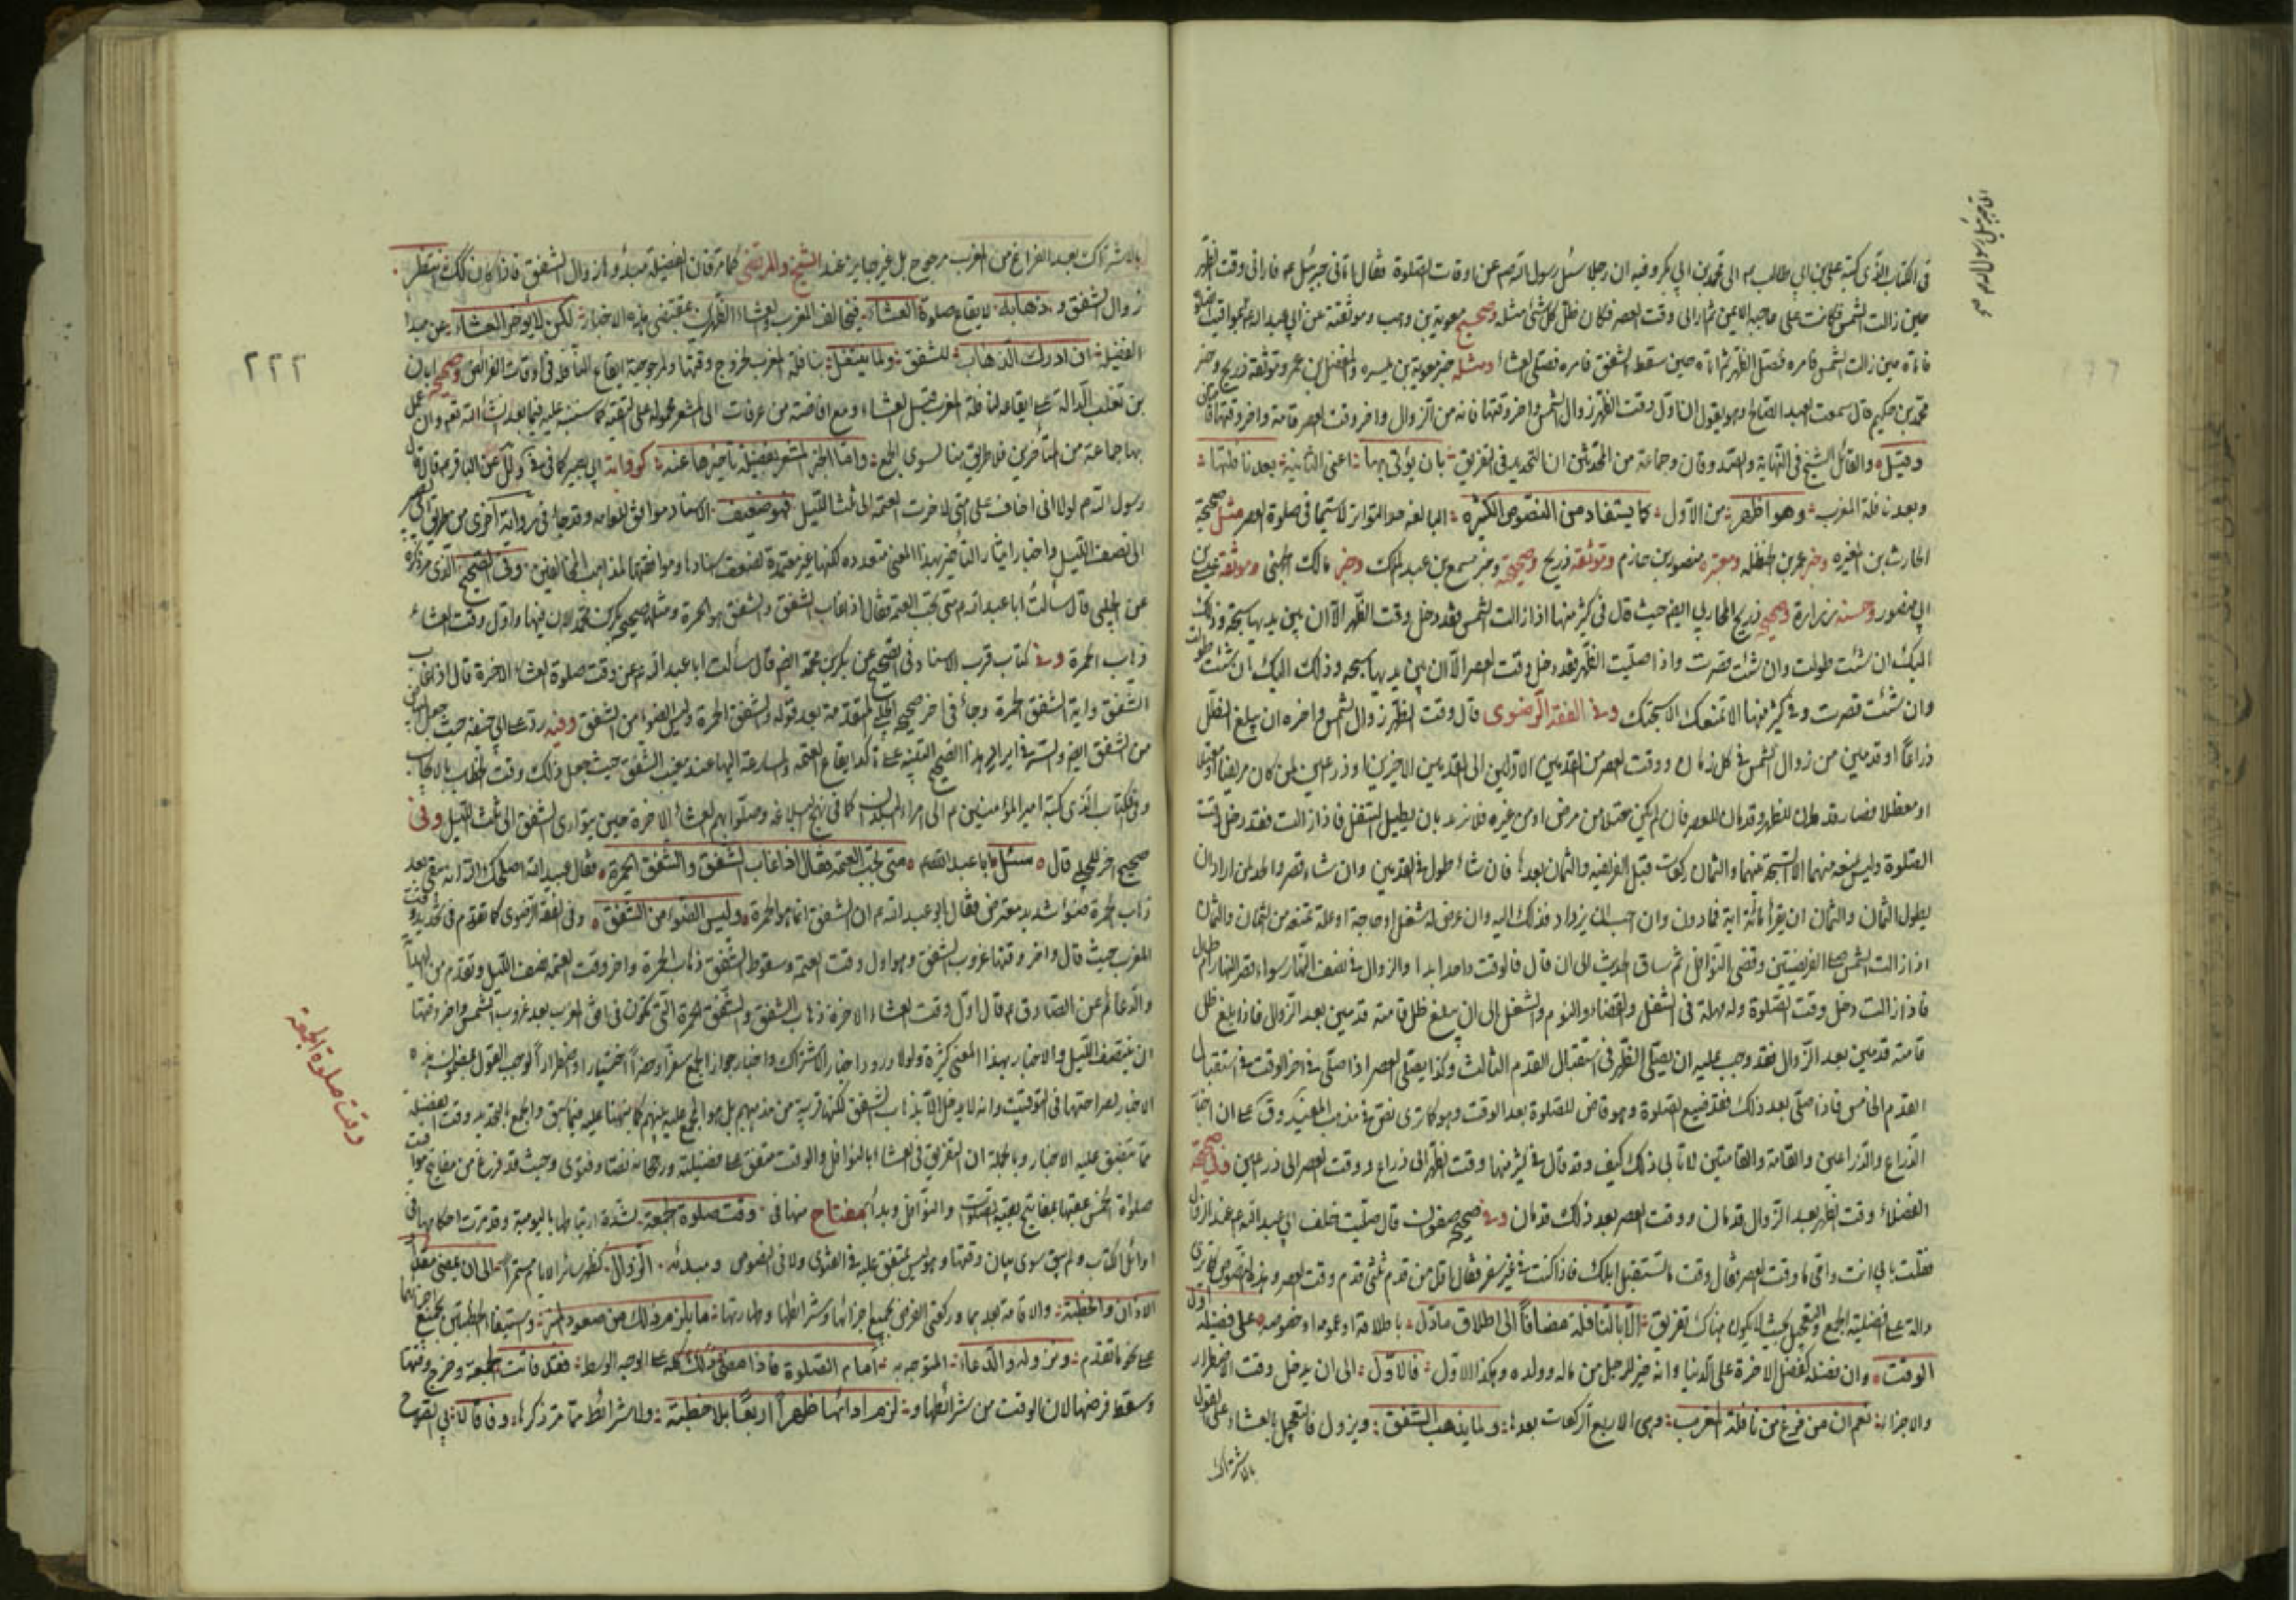 في الكتاب الذي كتبه علي بن ابي طالب ع الى محمد بن ابي بكر وفيه ان رجلا سئل رسول الله ص عن اوقات الصلوة فقال اتاني جبرئيل ع فاراني وقت الظهر
حين زالت الشمس فكانت على حاجبه الايمن ثم اراني وقت العصر فكان ظل كل شئ مثله وصحيح معوية بن وهب وموثقته عن ابي عبد الله
فاتاه حين زالت الشمس فامره فصلى الظهر ثم اتاه حين سقط الشفق فامره فصلى العشاء ومثله خبر معوية بن ميسره والمفضل بن عمر وموثقة ذريح وخبر
محمد بن حكيم قال سمعت العبد الصالح وهو يقول ان اول وقت الظهر زوال الشمس واخر وقتها قامة من الزوال واخر وقت العصر قامة واخر وقتها قامتان
وقيل والقائل الشيخ في النهاية وجماعة من المحدثين ان التحديد في التفريق بان يؤتى بها اعنى الثانية بعد نافلتها
وبعد نافلة المغرب وهو اظهر من الاول كما يستفاد من النصوص الكثيره البالغه حد التواتر لا سيما في صلوة العصر مثل صحيحة
الحارث بن المغيره وخبر عمر بن حنظله ومعتبره منصور بن حازم وموثقة ذريح وصحيحة وخبر مسمع بن عبد الملك وخبر مالك الجهني وموثقة
ابي منصور وحسنه زرارة وصحيح ذريح المحاربي ايضا حيث قال في كثير منها اذا زالت الشمس فقد دخل وقت الظهر الا ان بين يديها سبحة وذلك
اليك ان شئت طولت وان شئت قصرت واذا صليت الظهر فقد دخل وقت العصر الا ان بين يديها سبحه وذلك اليك ان شئت طولت
وان شئت قصرت وفي كثير منها الا تمنعك الا سبحتك وفي الفقه الرضوي قال وقت الظهر زوال الشمس واخره ان يبلغ الظل
ذراعا او قدمين من زوال الشمس في كل زمان ووقت العصر من القدمين الاولين الى القدمين الاخيرين او ذراعين لمن كان مريضا او معتلا
او معطلا فصار قدمان للظهر وقدمان للعصر فان لم يكن معتلا من مرض او من غيره فلا يزيد بان يطيل التنفل فاذا زالت فقد دخل وقت
الصلوة وليس يمنعه منهما الا السبحة بينهما والثمان ركعات قبل الفريضه والثمان بعدها فان شاء طول في القدمين وان شاء قصر والحد لمن اراد ان
يطول الثمان والثمان ان يقرأ مائة اية فما دون وان احب ان يزداد فذلك اليه وان عرض له شغل او حاجة او علة تمنعه من الثمان والثمان
اذا زالت الشمس صلى الفريضتين وقضى النوافل ثم ساق الحديث الى ان قال فالوقت واحد ابدا والزوال في نصف النهار سواء قصر النهار ام طال
فاذا زالت دخل وقت الصلوة وله مهلة في التنفل والقضاء والنوم والشغل الى ان يبلغ ظل قامته قدمين بعد الزوال فاذا بلغ ظل
قامته قدمين بعد الزوال فقد وجب عليه ان يصلي الظهر في استقبال القدم الثالث وكذا يصلي العصر اذا صلى في اخر الوقت في استقبال
القدم الخامس فاذا صلى بعد ذلك فقد ضيع الصلوة وهو قاض للصلوة بعد الوقت وهو كما ترى نص في مذهب المفيد
الذراع والذراعين والقامة والقامتين لا تابى ذلك كيف وقد قال في كثير منها وقت الظهر الى ذراع ووقت العصر الى ذراعين
الفضلاء وقت الظهر بعد الزوال قدمان ووقت العصر بعد ذلك قدمان وفي صحيح صفوان قال صليت خلف ابي عبد الله ع عند الزوال
فقلت بابي انت وامي ما وقت العصر فقال وقت ما تستقبل ابلك فاذا كنت في غير سفر فقال اقل من قدم ثلثي قدم وقت العصر
دالة على فضيلة الجمع والتعجيل بحيث لا يكون هناك تفريق الا بالنافلة مضافا الى اطلاق ما دل باطلاقه او عمومه او خصوصه على فضيلة اول
الوقت وان فضله كفضل الاخرة على الدنيا وانه خير للرجل من ماله وولده وهكذا الاول فالاول الى ان يدخل وقت الاضطرار
والاجزاء نعم ان من فرغ من نافلة المغرب وهي الاربع الركعات بعدها ولما يذهب الشفق ويزول فالتعجيل بالعشاء على القول
بالاشتراك
بالاشتراك بعد الفراغ من المغرب مرجوح بل غير جايز عند الشيخ والمرتضى كما مر فان الفضيله مبدؤها زوال الشفق فاذا كان ذلك انتظر
زوال الشفق وذهابه لايقاع صلوة العشاء فيخالف المغرب والعشاء الظهرين بمقتضى هذه الاخبار لكن لا يؤخر العشاء عن مبدا
الفضيلة ان ادرك الذهاب للشفق ولما يتنفل بنافلة المغرب لخروج وقتها ولمرجوحية ايقاع النافله في اوقات الفرائض وصحيحة ابان
بن تغلب الدالة على ايقاعه لنافلة المغرب قبل العشاء ومع افاضته من عرفات الى المشعر محمولة على التقية كما سننبه عليه فيما بعد انشاء الله تعالى وان عمل
بها جماعة من المتأخرين فلا طريق بنا لسوى الجمع واما الخبر المشعر بفضيلة تأخيرها عنه كرواية ابي بصير كما في عن الباقر ع قال قال
رسول الله ص لولا اني اخاف على امتي لاخرت العتمة الى ثلث الليل فهو ضعيف الاسناد موافق للعامه وقد جاء في رواية اخرى من طريق ابي بصير
الى نصف الليل واخبار ايثار التأخير بهذا المعنى متعدده لكنها غير معتمدة لضعف اسنادها وموافقتها لمذاهب المخالفين وفي الصحيح الذي مر ذكره
عن الحلبي قال سألت ابا عبد الله ع متى تجب العتمة فقال اذا غاب الشفق والشفق هو الحمرة ومثله صحيح بكر بن محمد لان فيها واول وقت العشاء
ذهاب الحمرة وفي كتاب قرب الاسناد وفي الصحيح عن بكر بن محمد ايضا قال سألت ابا عبد الله ع عن وقت صلوة العشاء الاخرة قال اذا غاب
الشفق واية الشفق الحمرة وجاء في اخر صحيح الحلبي المتقدمة بعد قوله والشفق الحمرة وليس الضوء من الشفق وفيه رد على ابي حنيفه حيث جعل البياض
من الشفق ايضا والسر في ايراد هذا الصحيح التنبيه على تأكد ايقاع العتمة والمسارعة اليها عند مغيب الشفق حيث جعل ذلك وقت الخطاب بالايجاب
وفي الكتاب الذي كتبه امير المؤمنين ع الى امراء البلدان كما في نهج البلاغه وصلوا بهم العشاء الاخرة حين يتوارى الشفق الى ثلث الليل وفي
صحيح اخر للحلبي قال سئل ابا عبد الله ع متى تجب العتمه فقال اذا غاب الشفق والشفق الحمرة فقال عبيد الله اصلحك الله انه يبقى بعد
ذهاب الحمرة ضوء شديد معترض فقال ابو عبد الله ع ان الشفق انما هو الحمرة وليس الضوء من الشفق وفي الفقه الرضوي كما تقدم في تحديد وقت
المغرب حيث قال واخر وقتها غروب الشفق وهو اول وقت العتمة وسقوط الشفق ذهاب الحمرة واخر وقت العتمه نصف الليل وتقدم من
والدعائم عن الصادق ع قال اول وقت العشاء الاخرة ذهاب الشفق والشفق الحمرة التي تكون في افق المغرب بعد غروب الشمس واخر وقتها
ان ينتصف الليل والاخبار بهذا المعنى كثيرة ولولا ورود اخبار الاشتراك واخبار جواز الجمع سفرا وحضرا اختيارا واضطرارا لوجب القول بمضمون هذه
الاخبار لصراحتها في التوقيت وانه لا يدخل الا بذهاب الشفق لكنها قريبة من مذهبهم بل هو المجمع عليه بينهم كما نبهنا عليه فيما سبق والجمع بالتحديد وقت الفضيلة
مما تتفق عليه الاخبار وبالجملة ان التفريق في العشاء بالنوافل والوقت متفق على فضيلته ورجحانه نصا وفتوى وحيث قد فرغ من مفاتيح مواقيت
صلوة الخمس عقبها بمفاتيح بقية الصلوات والنوافل وبدأ بمفتاح منها في وقت صلوة الجمعة لشدة ارتباطها باليومية وقد مرت احكامها في
اوائل الكتاب ولم يبق سوى بيان وقتها وهو ليس بمتفق عليه في الفتوى ولا في النصوص ومبدئه الزوال كظهر سائر الايام مستمرا الى ان يمضى مقدار
الاذان والخطبة والاقامة بعدهما وركعتي الفرض بجميع اجزائها وشرائطها وطهارتها وما يلزم ذلك من صعود المنبر واستيفاء الخطبتين بجميع اجزائهما
على نحو ما تقدم ونزوله والدعاء المتوجه به امام الصلوة فاذا مضى ذلك كله على الوجه الوسط فقد فاتت الجمعة وخرج وقتها
وسقط فرضها لان الوقت من شرائطها ولزم ادائها ظهرا اربعا بلا خطبة ولا شرائط مما مر ذكرها وفاقا
وقت صلوة الجمعة
٢٢٢